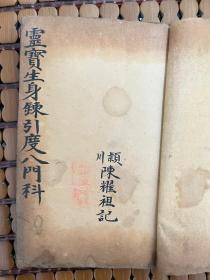 靈寶生身鍊引度八門科
潁川
陳耀祖記